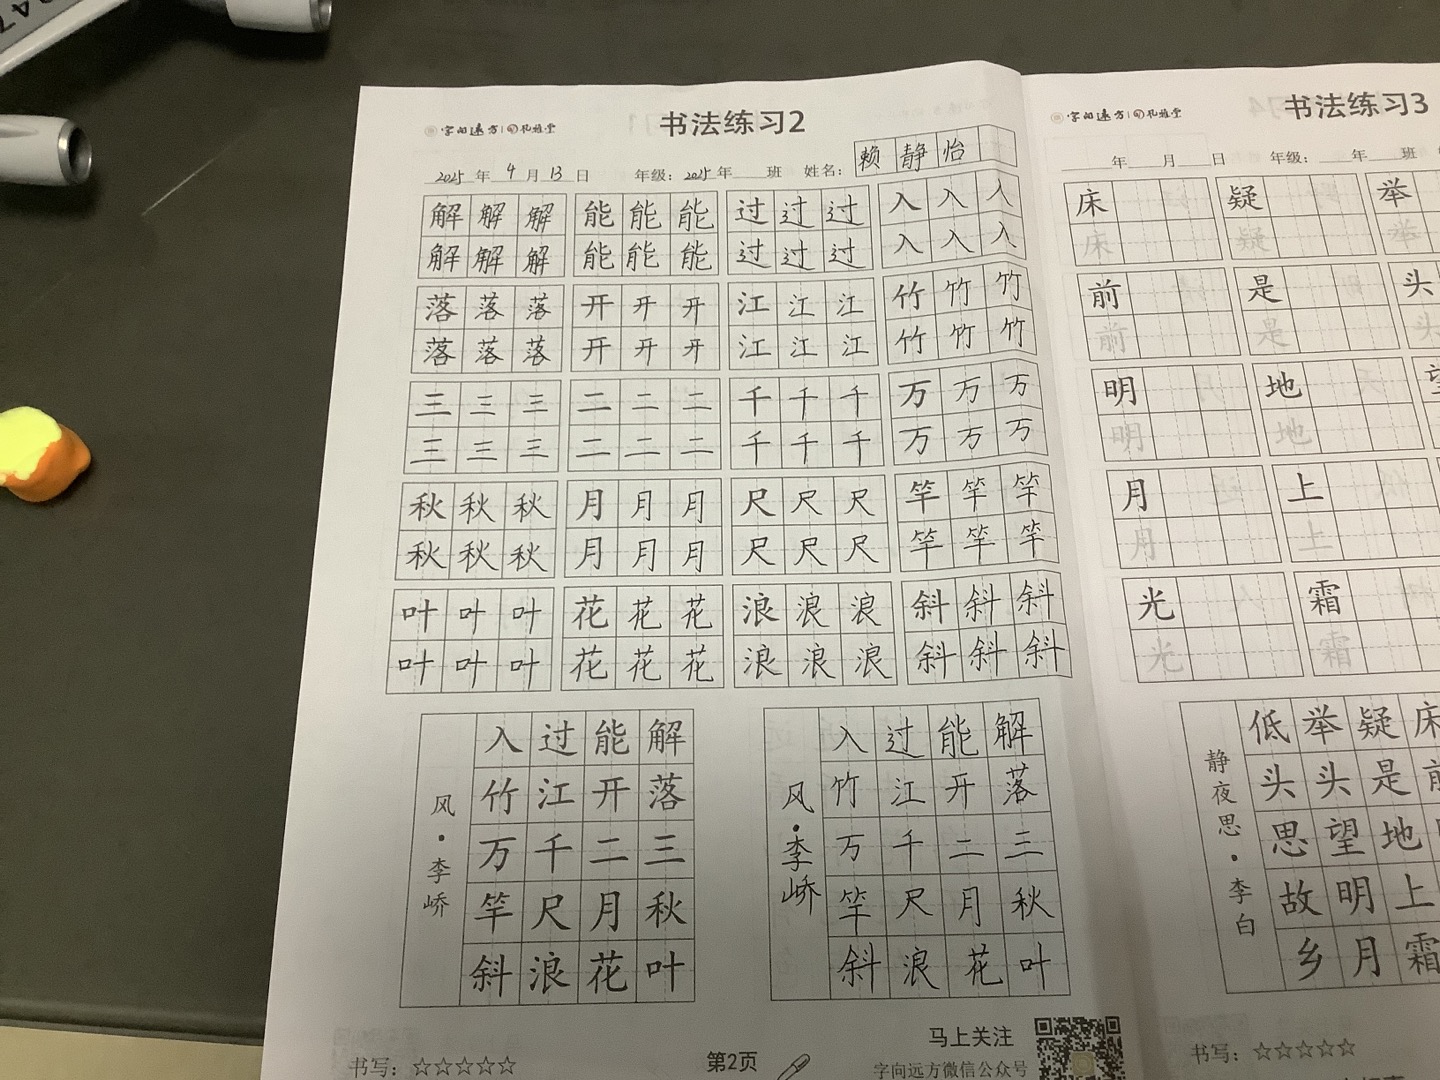 字向远方 孔雅堂
书法练习2
2025年4月13日 年级：2025年 班 姓名：赖静怡
解解解 能能能 过过过 入入入
解解解 能能能 过过过 入入入
落落落 开开开 江江江 竹竹竹
落落落 开开开 江江江 竹竹竹
三三三 二二二 千千千 万万万
三三三 二二二 千千千 万万万
秋秋秋 月月月 尺尺尺 竿竿竿
秋秋秋 月月月 尺尺尺 竿竿竿
叶叶叶 花花花 浪浪浪 斜斜斜
叶叶叶 花花花 浪浪浪 斜斜斜
解落三秋叶
能开二月花
过江千尺浪
入竹万竿斜
风·李峤
解落三秋叶
能开二月花
过江千尺浪
入竹万竿斜
风·李峤
书写：☆☆☆☆☆
第2页
马上关注
字向远方微信公众号
字向远方 孔雅堂
书法练习3
年 月 日 年级： 年 班
床 疑 举
床 疑 举
前 是 头
前 是 头
明 地 望
明 地
月 上
月 上
光 霜
光 霜
床前
疑是地上霜
举头望明月
低头思故乡
静夜思·李白
书写：☆☆☆☆☆